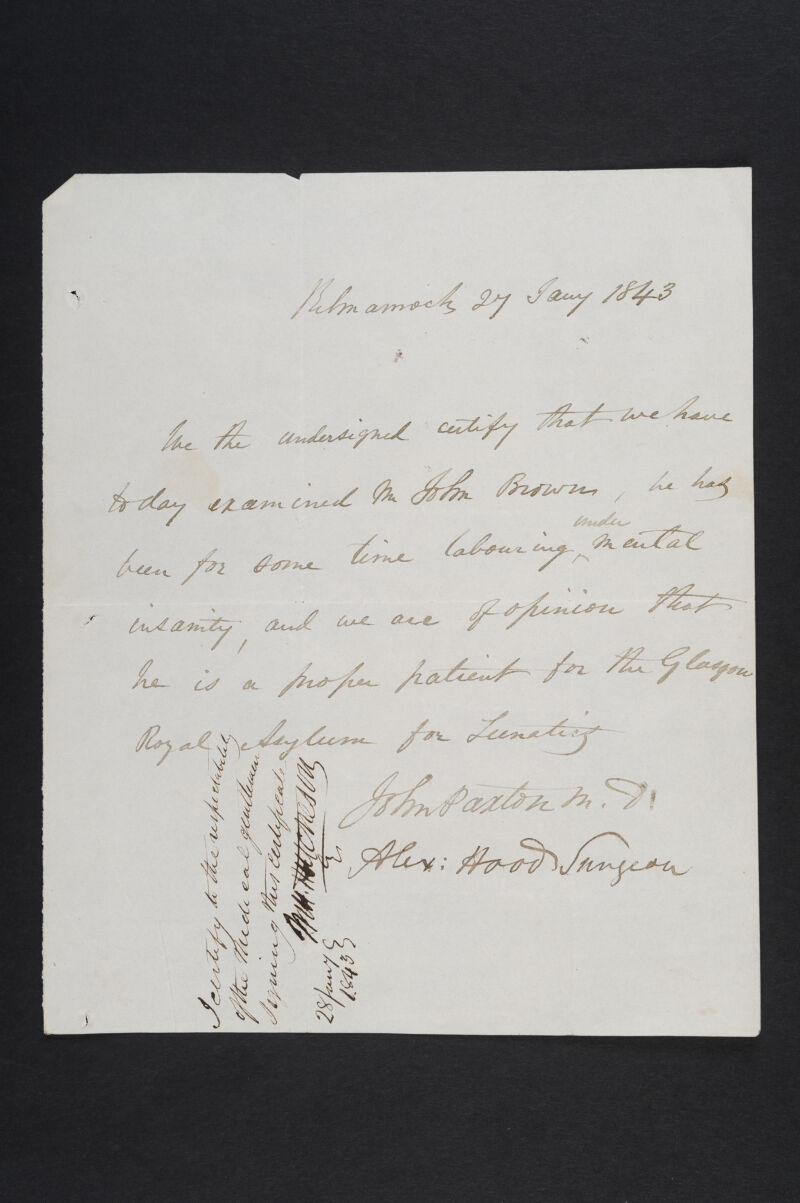 Kilmarnock 27 Jany 1843
We the undersigned certify that we have
today examined Mr John Brown, he has
been for some time labouring under mental
insanity, and we are of opinion that
he is a proper patient for the Glasgow
Royal Asylum for Lunatics
John Paxton M.D.
Alex: Hood Surgeon
I certify to the respectability
of the Medical gentlemen
signing this certificate
28 Jany
1843